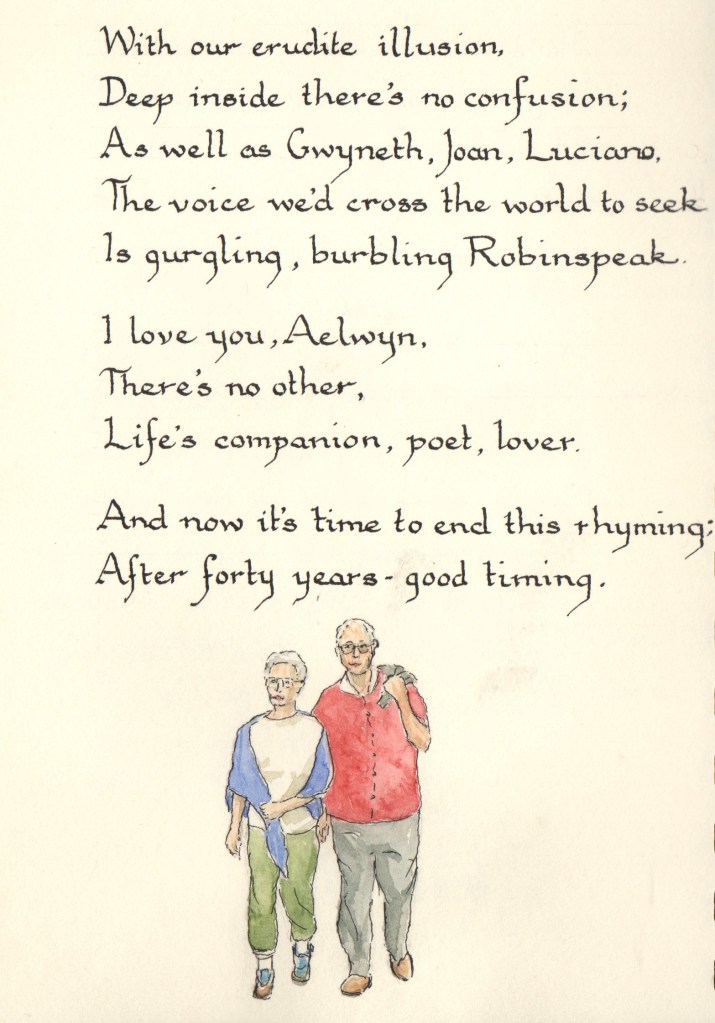 With our erudite illusion,
Deep inside there's no confusion;
As well as Gwyneth, Joan, Luciano,
The voice we'd cross the world to seek
Is gurgling, burbling Robinspeak.
I love you, Aelwyn,
There's no other,
Life's companion, poet, lover.
And now it's time to end this rhyming;
After forty years - good timing.